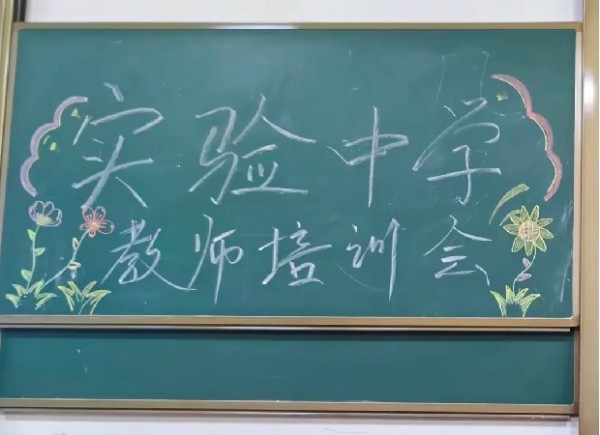 实验中学
教师培训会